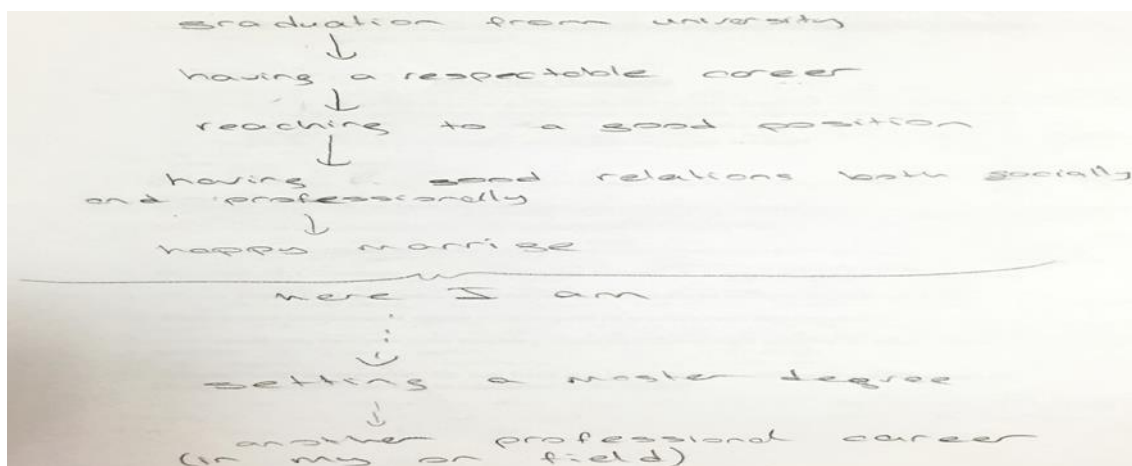 graduation from university
having a respectable career
reaching to a good position
having good relations both socially
and professionally
happy marrige
here I am
getting a master degree
another professional career
(in my on field)